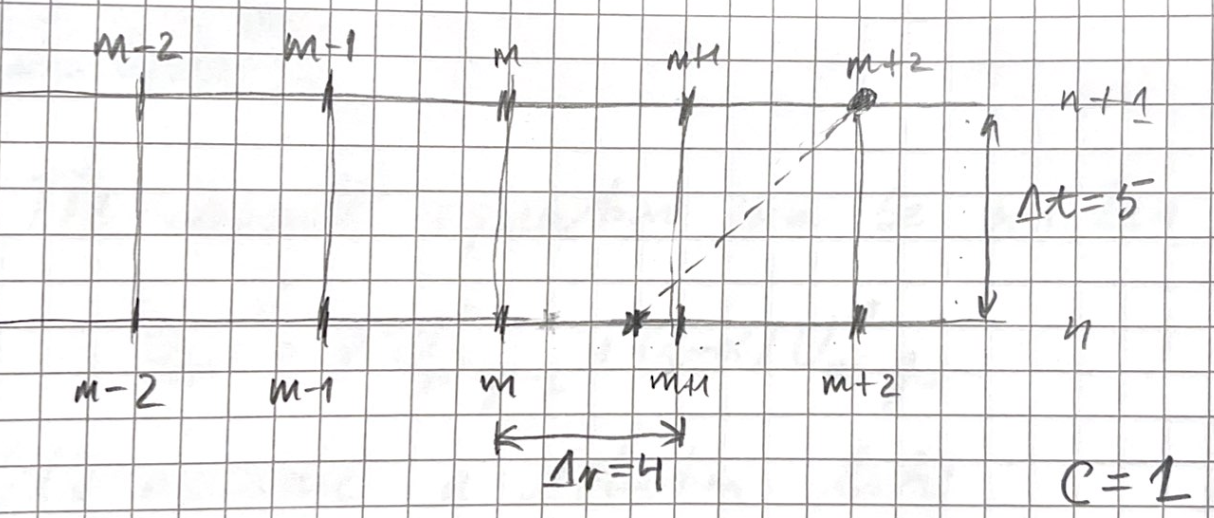 m-2 m-1 m m+1 m+2
n+1
Δt=5
n
m-2 m-1 m m+1 m+2
Δr=4
C=1